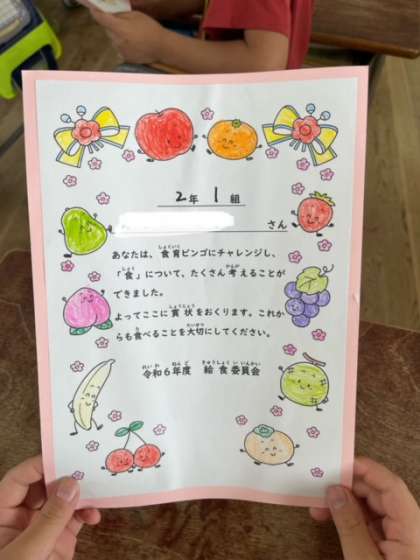 2年 1組
さん
あなたは、食育ビンゴにチャレンジし、
「食」について、たくさん考えることが
できました。
よってここに賞状をおくります。これか
らも食べることを大切にしてください。
令和6年度 給食委員会